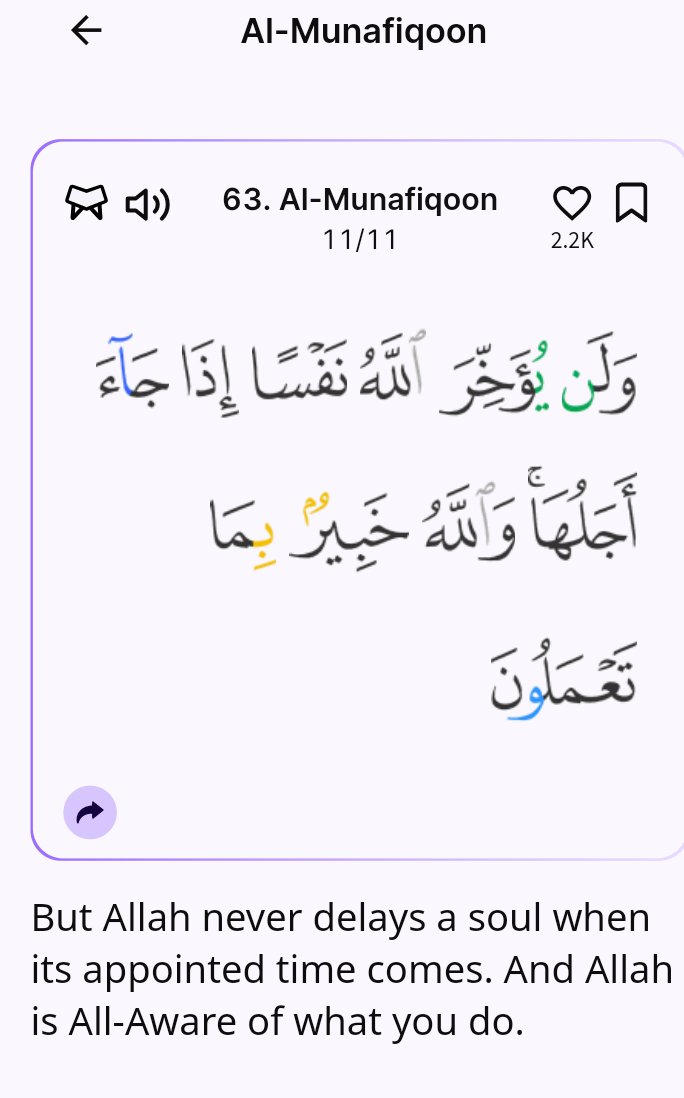 Al-Munafiqoon
63. Al-Munafiqoon
11/11
2.2K
وَلَن يُؤَخِّرَ ٱللَّهُ نَفۡسًا إِذَا جَآءَ
أَجَلُهَاۚ وَٱللَّهُ خَبِيرُۢ بِمَا
تَعۡمَلُونَ
But Allah never delays a soul when
its appointed time comes. And Allah
is All-Aware of what you do.